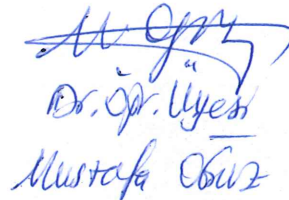 Dr. Öğr. Üyesi
Mustafa Oğuz